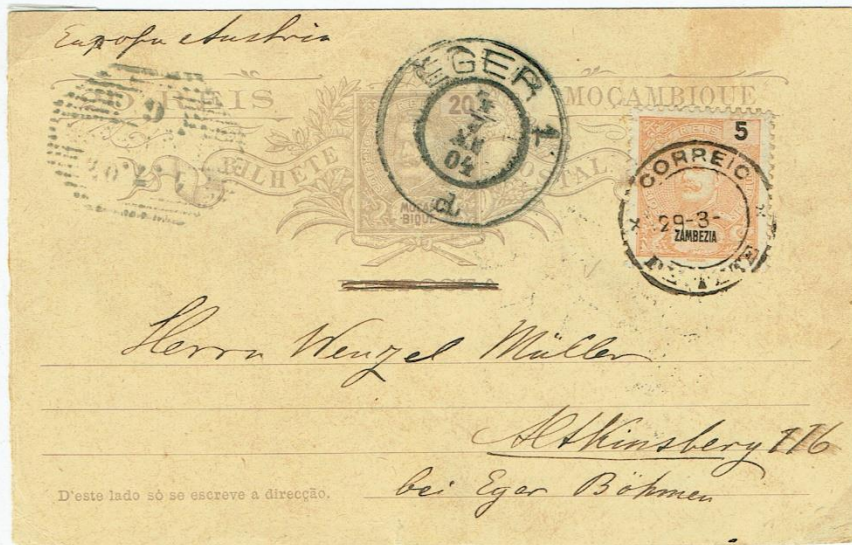 Europa Austria
20 REIS MOÇAMBIQUE
BILHETE POSTAL
20
MOÇAM
BIQUE
EGER 1
04
d
5
CORREIO
29-3-
ZAMBEZIA
TETE
Herrn Wenzel Müller
Altkinsberg 116
bei Eger Böhmen
D'este lado só se escreve a direcção.